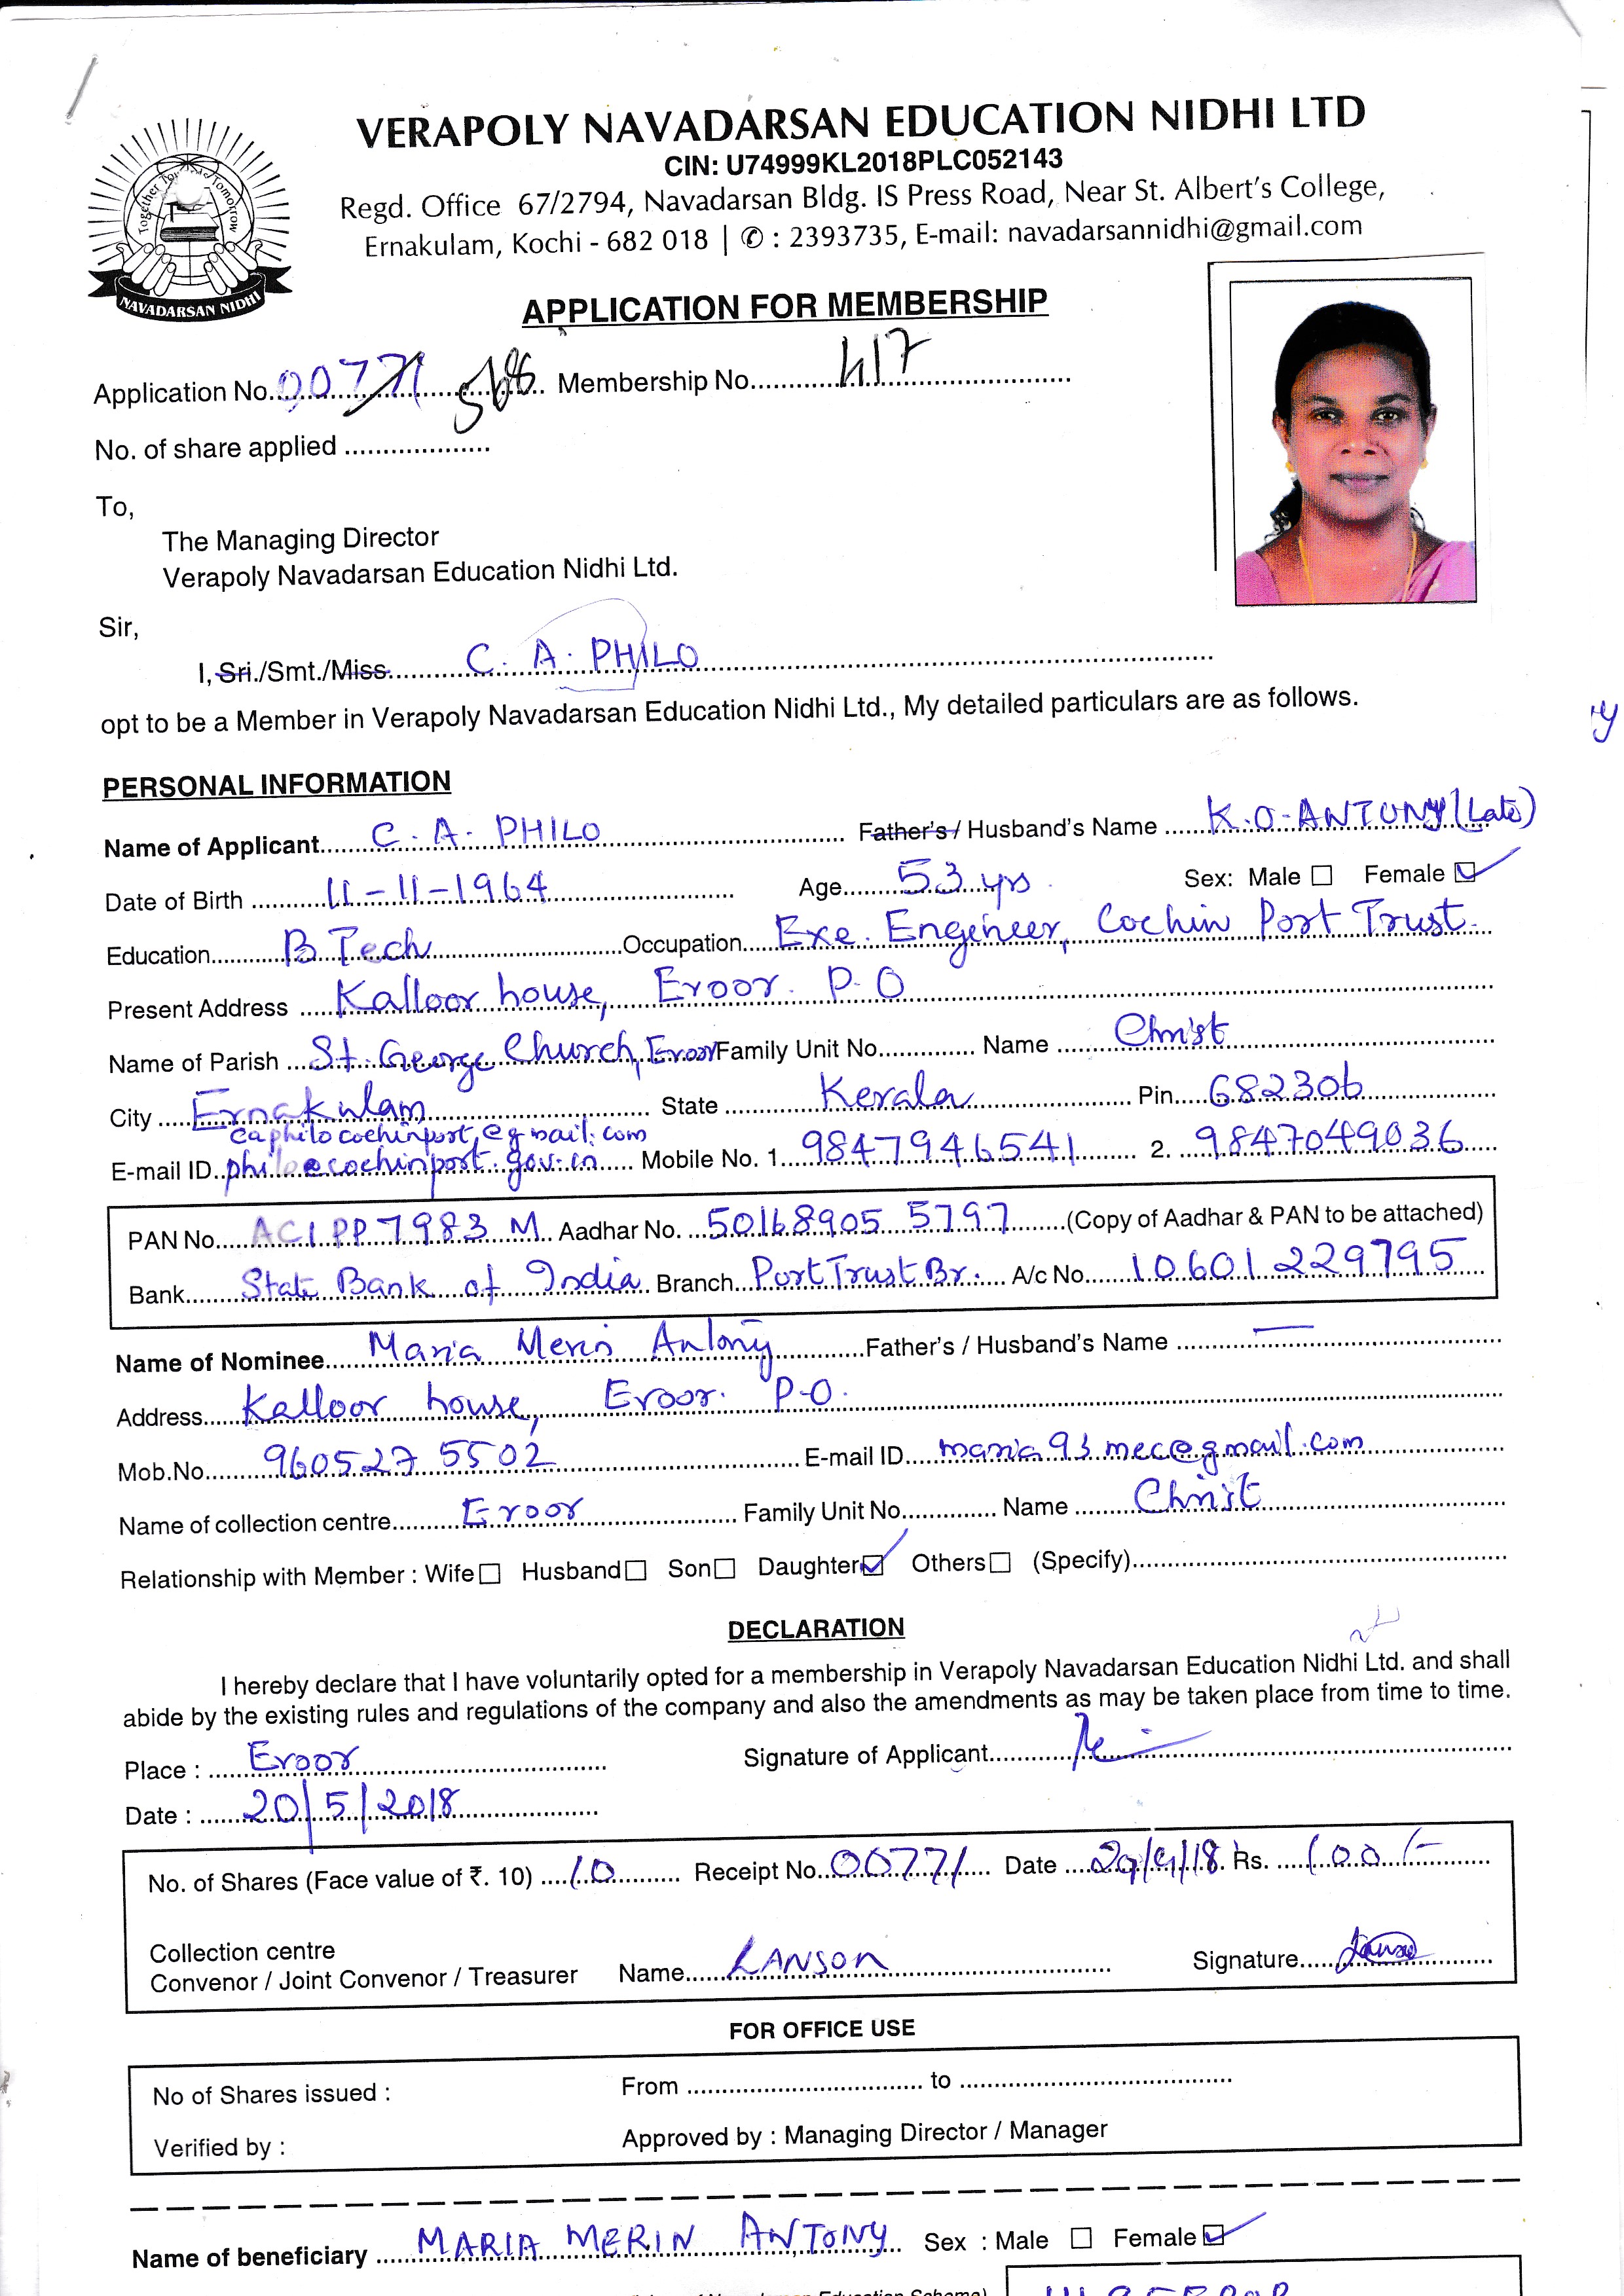 VERAPOLY NAVADARSAN EDUCATION NIDHI LTD
CIN: U74999KL2018PLC052143
Regd. Office 67/2794, Navadarsan Bldg. IS Press Road, Near St. Albert's College,
Ernakulam, Kochi - 682 018 | ✆ : 2393735, E-mail: navadarsannidhi@gmail.com
Together for Tomorrow
NAVADARSAN NIDHI
APPLICATION FOR MEMBERSHIP
Application No. 00771 568 Membership No. 417
No. of share applied
To,
The Managing Director
Verapoly Navadarsan Education Nidhi Ltd.
Sir,
I, Sri./Smt./Miss. C. A. PHILO
opt to be a Member in Verapoly Navadarsan Education Nidhi Ltd., My detailed particulars are as follows.
PERSONAL INFORMATION
Name of Applicant C. A. PHILO Father's / Husband's Name K.O. ANTONY (Late)
Date of Birth 11-11-1964 Age 53 yrs Sex: Male Female
Education B Tech Occupation Exe. Engineer, Cochin Port Trust.
Present Address Kalloor house, Eroor. P.O
Name of Parish St. George Church, Eroor Family Unit No. Name Christ
City Ernakulam State Kerala Pin 682306
caphilocochinport@gmail.com
E-mail ID philo@cochinport.gov.in Mobile No. 1. 9847946541 2. 9847049036
PAN No. ACIPP7983M Aadhar No. 50168905 5797 (Copy of Aadhar & PAN to be attached)
Bank State Bank of India Branch Port Trust Br. A/c No. 10601229795
Name of Nominee Maria Merin Antony Father's / Husband's Name —
Address Kalloor house, Eroor. P.O.
Mob.No. 960527 5502 E-mail ID maria93mec@gmail.com
Name of collection centre Eroor Family Unit No. Name Christ
Relationship with Member : Wife Husband Son Daughter Others (Specify)
DECLARATION
I hereby declare that I have voluntarily opted for a membership in Verapoly Navadarsan Education Nidhi Ltd. and shall
abide by the existing rules and regulations of the company and also the amendments as may be taken place from time to time.
Place : Eroor Signature of Applicant
Date : 20/5/2018
No. of Shares (Face value of ₹. 10) 10 Receipt No. 00771 Date 29/4/18 Rs. 100/-
Collection centre
Convenor / Joint Convenor / Treasurer Name LANSON Signature
FOR OFFICE USE
No of Shares issued : From to
Verified by : Approved by : Managing Director / Manager
Name of beneficiary MARIA MERIN ANTONY Sex : Male Female